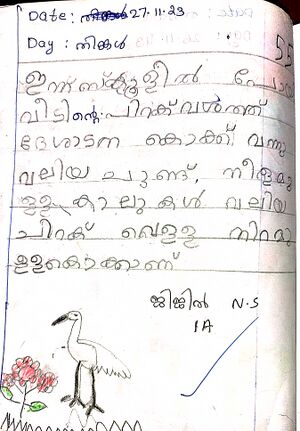 Date: 27.11.23
Day: തിങ്കൾ
ഇന്ന് സ്കൂളിൽ പോയി
വീടിന്റെ പിറക് വശത്ത്
ദേശാടന കൊക്ക് വന്നു
വലിയ ചുണ്ട്. നീളമു
ള്ള കാലുകൾ വലിയ
ചിറക് വെള്ള നിറമു
ള്ളകൊക്കാണ്
ജിജിൽ N.S
1A